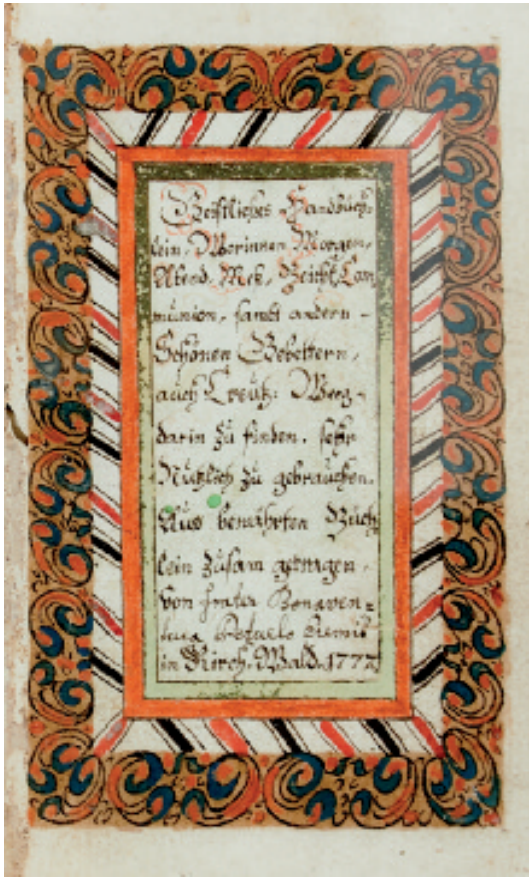 Geistliches Handbüch-
lein, Worinnen Morgen,
Abend, Meß, Beicht, Com
munion, sambt andern -
Schönen Gebettern,
auch Creütz. Weeg -
darin zu finden, sehr
Nutzlich zu gebrauchen.
Aus bewährten Büch
lein Zusam getragen,
Von frater Bonaven=
tura
in Kirch. Wald. 1772